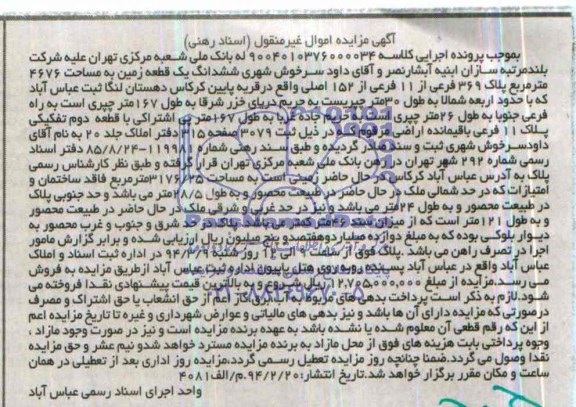 آگهی مزایده اموال غیرمنقول (اسناد رهنی)
بموجب پرونده اجرایی کلاسه ۹۰۰۴۰۱۰۳۷۶۰۰۰۰۳۴ له بانک ملی شعبه مرکزی تهران علیه شرکت
بلندمرتبه سازان ابنیه آبشارنصر و آقای داود سرخوش شهری ششدانگ یک قطعه زمین به مساحت ۴۶۷۶
مترمربع پلاک ۳۶۹ فرعی از ۱۱ فرعی از ۱۵۲ اصلی واقع درقریه پایین کرکاس دهستان لنگا ثبت عباس آباد
که با حدود اربعه شمالا به طول ۳۰متر چپریست به حریم دریای خزر شرقا به طول ۱۶۷متر چپری است به راه
فرعی جنوبا به طول ۲۶متر چپری است به حریم جاده غربا به طول ۱۶۷متر به اشتراکی با قطعه دوم تفکیکی
پلاک ۱۱ فرعی باقیمانده اراضی مرقوم که در ذیل ثبت ۳۰۷۹صفحه ۳۱۵دفتر املاک جلد ۲۰ به نام آقای
داودسرخوش شهری ثبت و سند صادر گردیده و طبق سند رهنی شماره ۱۱۹۹۸۱-۸۵/۸/۲۴ دفتر اسناد
رسمی شماره ۲۹۲ شهر تهران در رهن بانک ملی شعبه مرکزی تهران قرار گرفته و طبق نظر کارشناس رسمی
پلاک به آدرس عباس آباد کرکاس در حال حاضر زمینی است به مساحت ۳۱۷۶/۲۵مترمربع فاقد ساختمان و
امتیازات که در حد شمالی ملک در حال حاضر در طبیعت محصور و به طول ۲۸/۵متر می باشد و حد جنوبی پلاک
در طبیعت محصور و به طول ۲۴متر می باشد و نیز در حد غربی و شرقی ملک در حال حاضر در طبیعت محصور
و به طول ۱۲۱متر است که از میزان سند ۴۶متر کمتر می باشد. پلاک در حد شرق و جنوب و غرب محصور به
دیوار بلوکی بوده که به مبلغ دوازده میلیاردوهفتصدو پنج میلیون ریال ارزیابی شده و برابر گزارش مامور
اجرا در تصرف راهن می باشد .پلاک فوق از ساعت ۹ الی 12 روز شنبه ۹۴/۳/۹ در اداره ثبت اسناد و املاک
عباس آباد واقع در عباس آباد پسنده روبروی هتل پاپیون اداره ثبت عباس آباد ازطریق مزایده به فروش
می رسد.مزایده از مبلغ ۱۲,۷۰۵,۰۰۰,۰۰۰ریال شروع و به بالاترین قیمت پیشنهادی نقدا فروخته می
شود.لازم به ذکر است پرداخت بدهی های مربوط به آب،برق،گاز اعم از حق انشعاب یا حق اشتراک و مصرف
درصورتی که مزایده دارای آن ها باشد و نیز بدهی های مالیاتی و عوارض شهرداری و غیره تا تاریخ مزایده اعم
از این که رقم قطعی آن معلوم شده یا نشده باشد به عهده برنده مزایده است و نیز در صورت وجود مازاد ،
وجوه پرداختی بابت هزینه های فوق از محل مازاد به برنده مزایده مسترد خواهد شدو نیم عشر و حق مزایده
نقدا وصول می گردد.ضمنا چنانچه روز مزایده تعطیل رسمی گردد،مزایده روز اداری بعد از تعطیلی در همان
ساعت و مکان مقرر برگزار خواهد شد.تاریخ انتشار:۹۴/۲/۲۰.م/الف۴۰۸۱
واحد اجرای اسناد رسمی عباس آباد